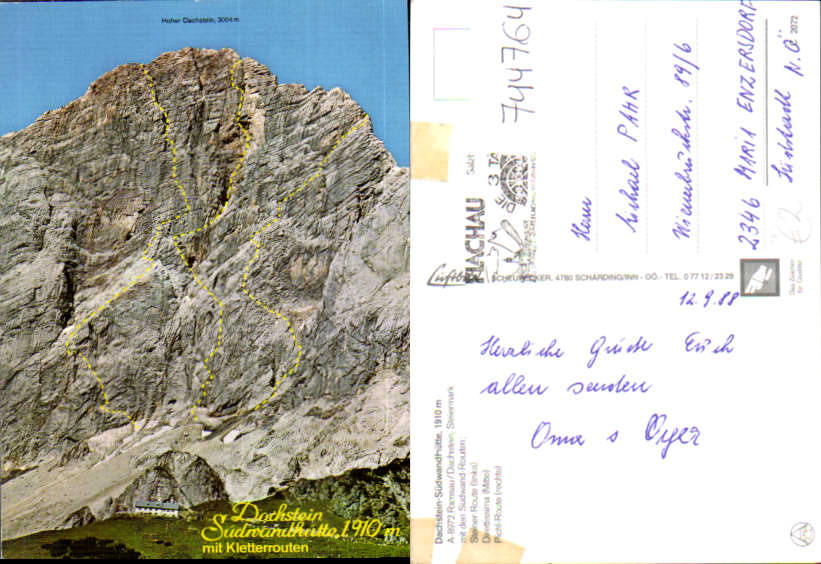 Hoher Dachstein, 3004 m
Dachstein
Südwandhütte, 1.910 m
mit Kletterrouten
744764
FLACHAU
Salzb
Herrn
Michael PAAR
89/6
2346 MARIA ENZERSDORF
Südstadt N.Ö
2072
€2
4780 SCHÄRDING/INN - OÖ. - TEL. 0 77 12 / 23 29
Das Zeichen
für Qualität
12.9.88
Herzliche Grüße Euch
allen senden
Oma
Dachstein-Südwandhütte, 1910 m
A-8972 Ramsau/Dachstein, Steiermark
mit den Südwand-Routen:
Steiner Route (links)
Direttissima (Mitte)
Pichl-Route (rechts)